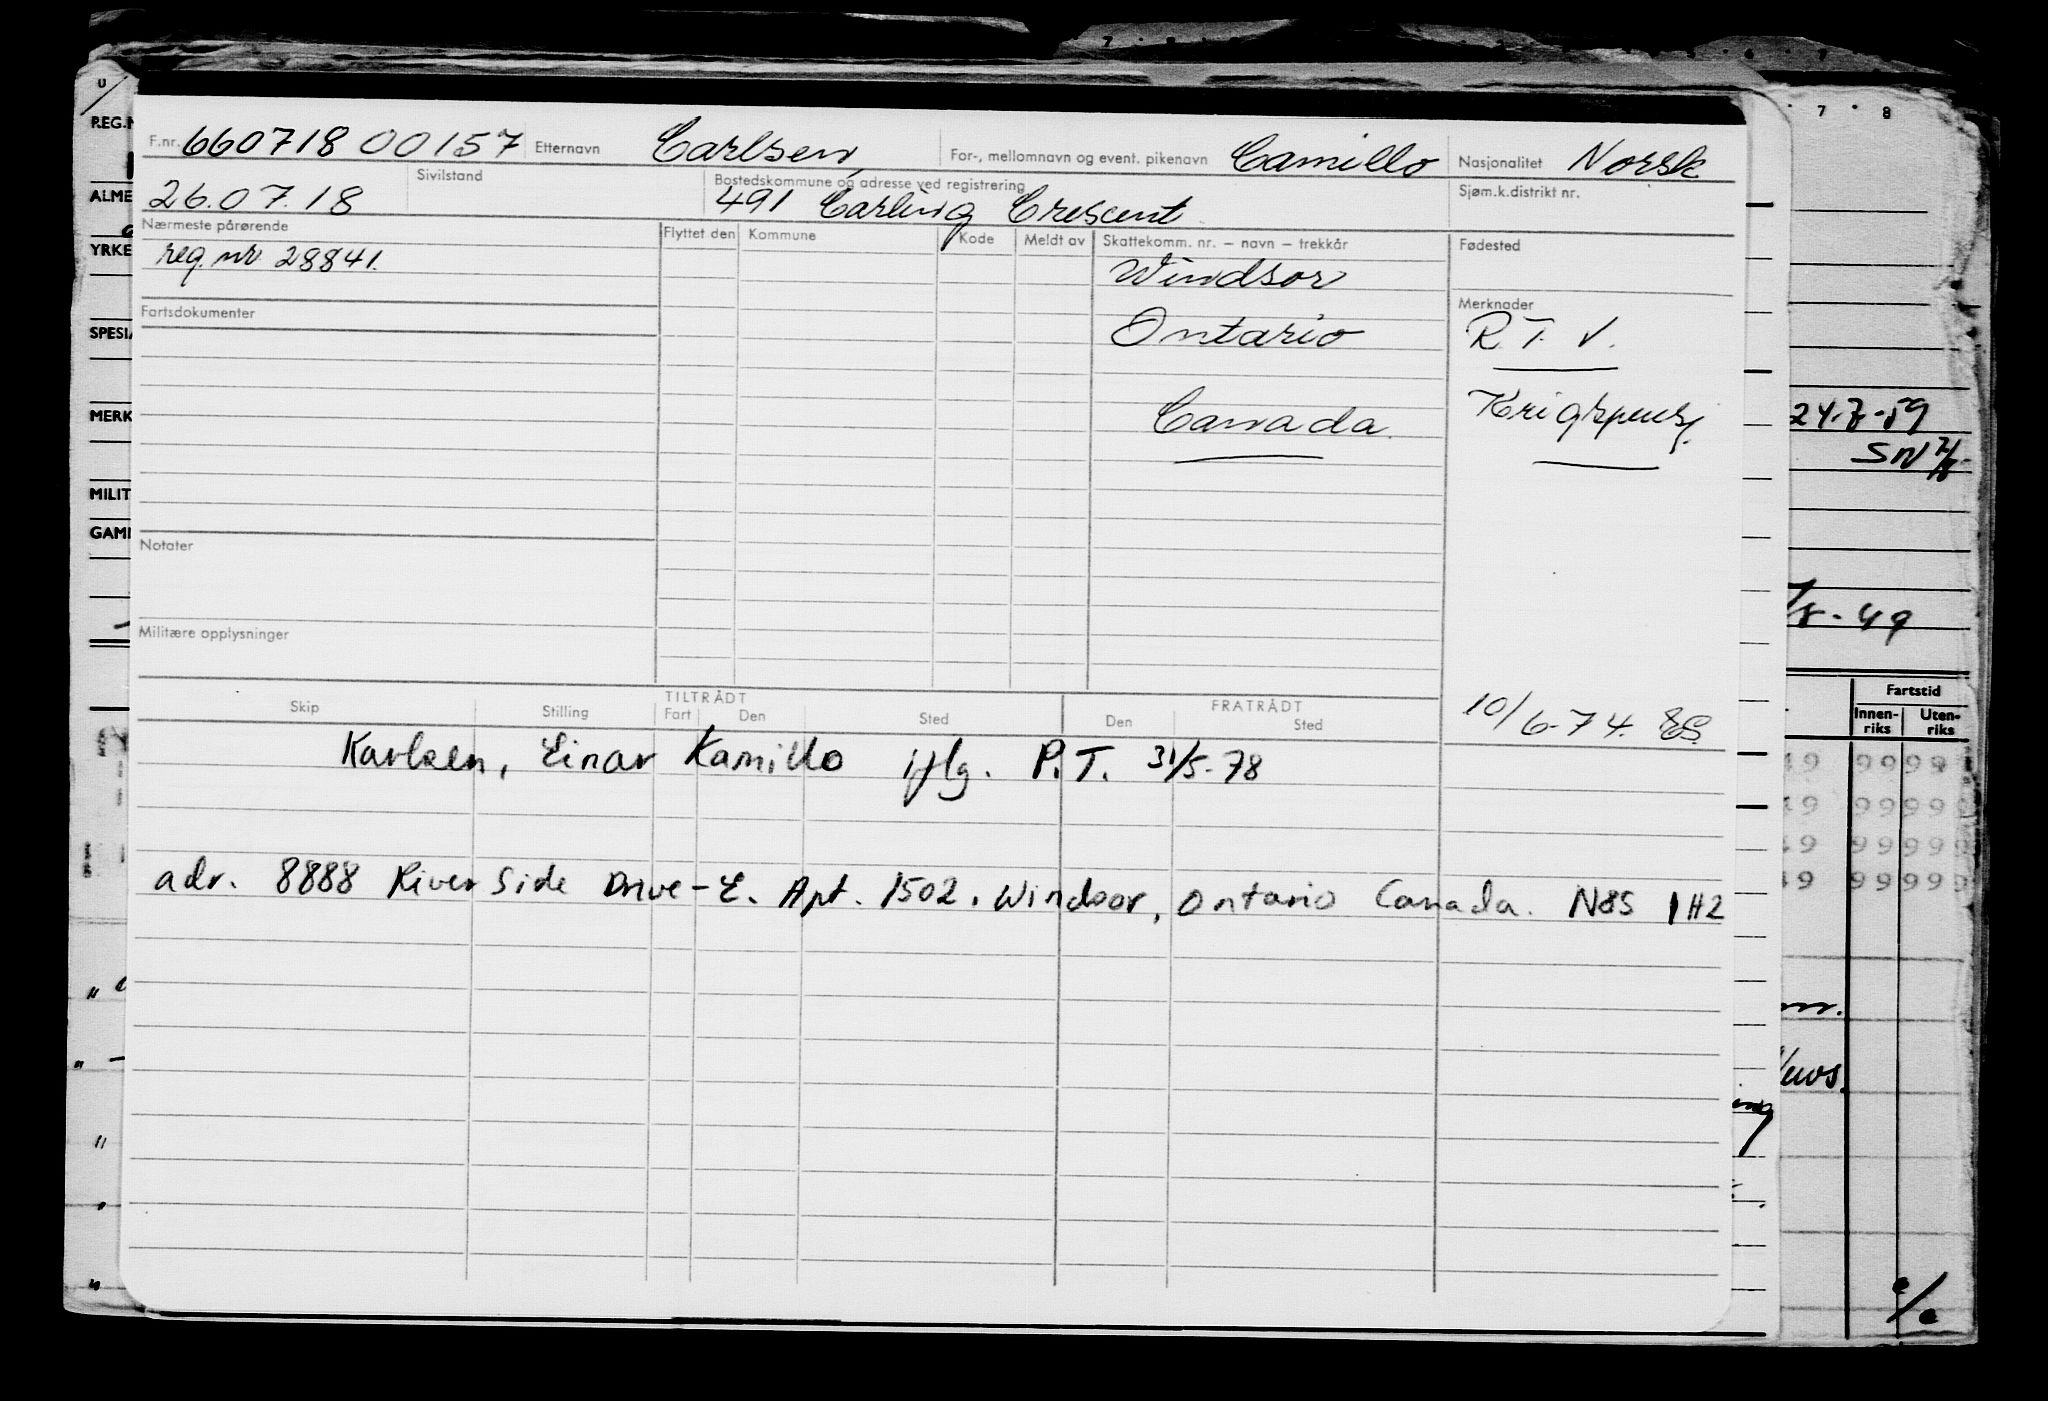 F.nr. 660718 00157 Etternavn Carlsen, For-, mellomnavn og event. pikenavn Camillo Nasjonalitet Norsk
26.07.18 Sivilstand Bostedskommune og adresse ved registrering 491 Carling Crescent Sjøm.k.distrikt nr.
Nærmeste pårørende Flyttet den Kommune Kode Meldt av Skattekomm. nr. – navn – trekkår Fødested
reg. nr 28841. Windsor
Fartsdokumenter Ontario Merknader
R.T.V.
Canada. Krigspensj.
Notater
Militære opplysninger
Skip Stilling TILTRÅDT Fart Den Sted FRATRÅDT Den Sted
10/6-74.
Karlsen, Einar Kamillo iflg. P.T. 31/5-78
adr. 8888 River Side Drive-E. Apt. 1502. Windsor, Ontario Canada. N8S 1H2
REG.N
ALME
YRKE
SPESI
MERK
MILIT
GAML
7 8
24-7-59
SN
-49
Fartstid
Innen-riks Uten-riks
49 9998
49 9999
49 9999
49 9999